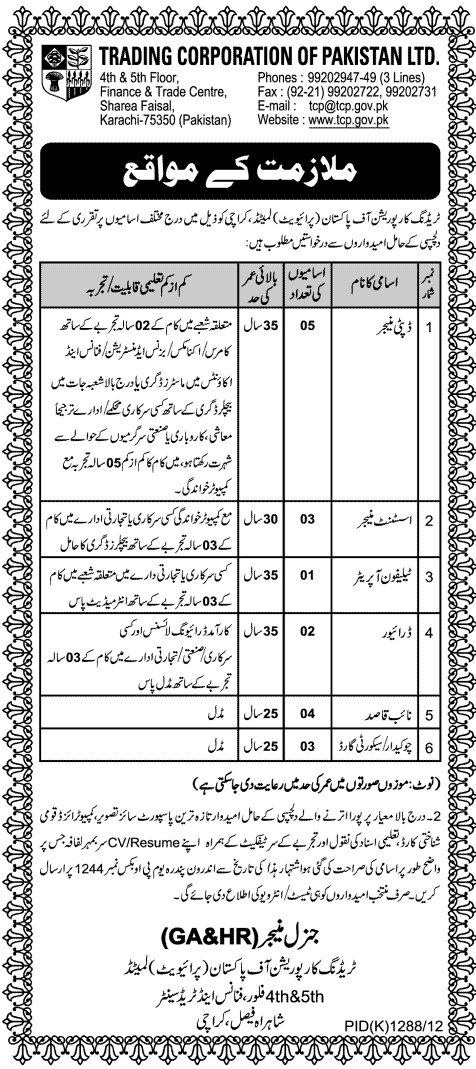 TRADING CORPORATION OF PAKISTAN LTD.
4th & 5th Floor,
Finance & Trade Centre,
Sharea Faisal,
Karachi-75350 (Pakistan)
Phones : 99202947-49 (3 Lines)
Fax : (92-21) 99202722, 99202731
E-mail : tcp@tcp.gov.pk
Website : www.tcp.gov.pk
ملازمت کے مواقع
ٹریڈنگ کارپوریشن آف پاکستان (پرائیویٹ) لمیٹڈ، کراچی کو ذیل میں درج مختلف اسامیوں پر تقرری کے لئے
دلچسپی کے حامل امیدواروں سے درخواستیں مطلوب ہیں:
نمبر شمار
اسامی کا نام
اسامیوں کی تعداد
بالائی عمر کی حد
کم از کم تعلیمی قابلیت/تجربہ
1
ڈپٹی منیجر
05
35 سال
متعلقہ شعبے میں کام کے 02 سالہ تجربے کے ساتھ
کامرس/اکنامکس/بزنس ایڈمنسٹریشن/فنانس اینڈ
اکاؤنٹس میں ماسٹرز ڈگری یا درج بالا شعبہ جات میں
بیچلرز ڈگری کے ساتھ کسی سرکاری محکمے/ادارے ترجیحاً
معاشی، کاروباری یا صنعتی سرگرمیوں کے حوالے سے
شہرت رکھتا ہو، میں کام کا کم از کم 05 سالہ تجربہ مع
کمپیوٹر خواندگی۔
2
اسسٹنٹ منیجر
03
30 سال
مع کمپیوٹر خواندگی کسی سرکاری یا تجارتی ادارے میں کام
کے 03 سالہ تجربے کے ساتھ بیچلرز ڈگری کا حامل
3
ٹیلیفون آپریٹر
01
35 سال
کسی سرکاری یا تجارتی ادارے میں متعلقہ شعبے میں کام
کے 03 سالہ تجربے کے ساتھ انٹرمیڈیٹ پاس
4
ڈرائیور
02
35 سال
کارآمد ڈرائیونگ لائسنس اور کسی
سرکاری/صنعتی/تجارتی ادارے میں کام کے 03 سالہ
تجربے کے ساتھ مڈل پاس
5
نائب قاصد
04
25 سال
مڈل
6
چوکیدار/سیکورٹی گارڈ
03
25 سال
مڈل
(نوٹ: موزوں صورتوں میں عمر کی حد میں رعایت دی جاسکتی ہے)
2۔ درج بالا معیار پر پورا اترنے والے دلچسپی کے حامل امیدوار تازہ ترین پاسپورٹ سائز تصویر، کمپیوٹرائزڈ قومی
شناختی کارڈ، تعلیمی اسناد کی نقول اور تجربے کے سرٹیفکیٹ کے ہمراہ اپنے CV/Resume سربمہر لفافہ جس پر
واضح طور پر اسامی کی صراحت کی گئی ہو اشتہار ہذا کی تاریخ سے اندرون پندرہ یوم پی او بکس نمبر 1244 پر ارسال
کریں۔ صرف منتخب امیدواروں کو ہی ٹیسٹ/انٹرویو کی اطلاع دی جائے گی۔
جنرل منیجر (GA&HR)
ٹریڈنگ کارپوریشن آف پاکستان (پرائیویٹ) لمیٹڈ
4th&5th فلور، فنانس اینڈ ٹریڈ سینٹر
شاہراہ فیصل، کراچی
PID(K)1288/12